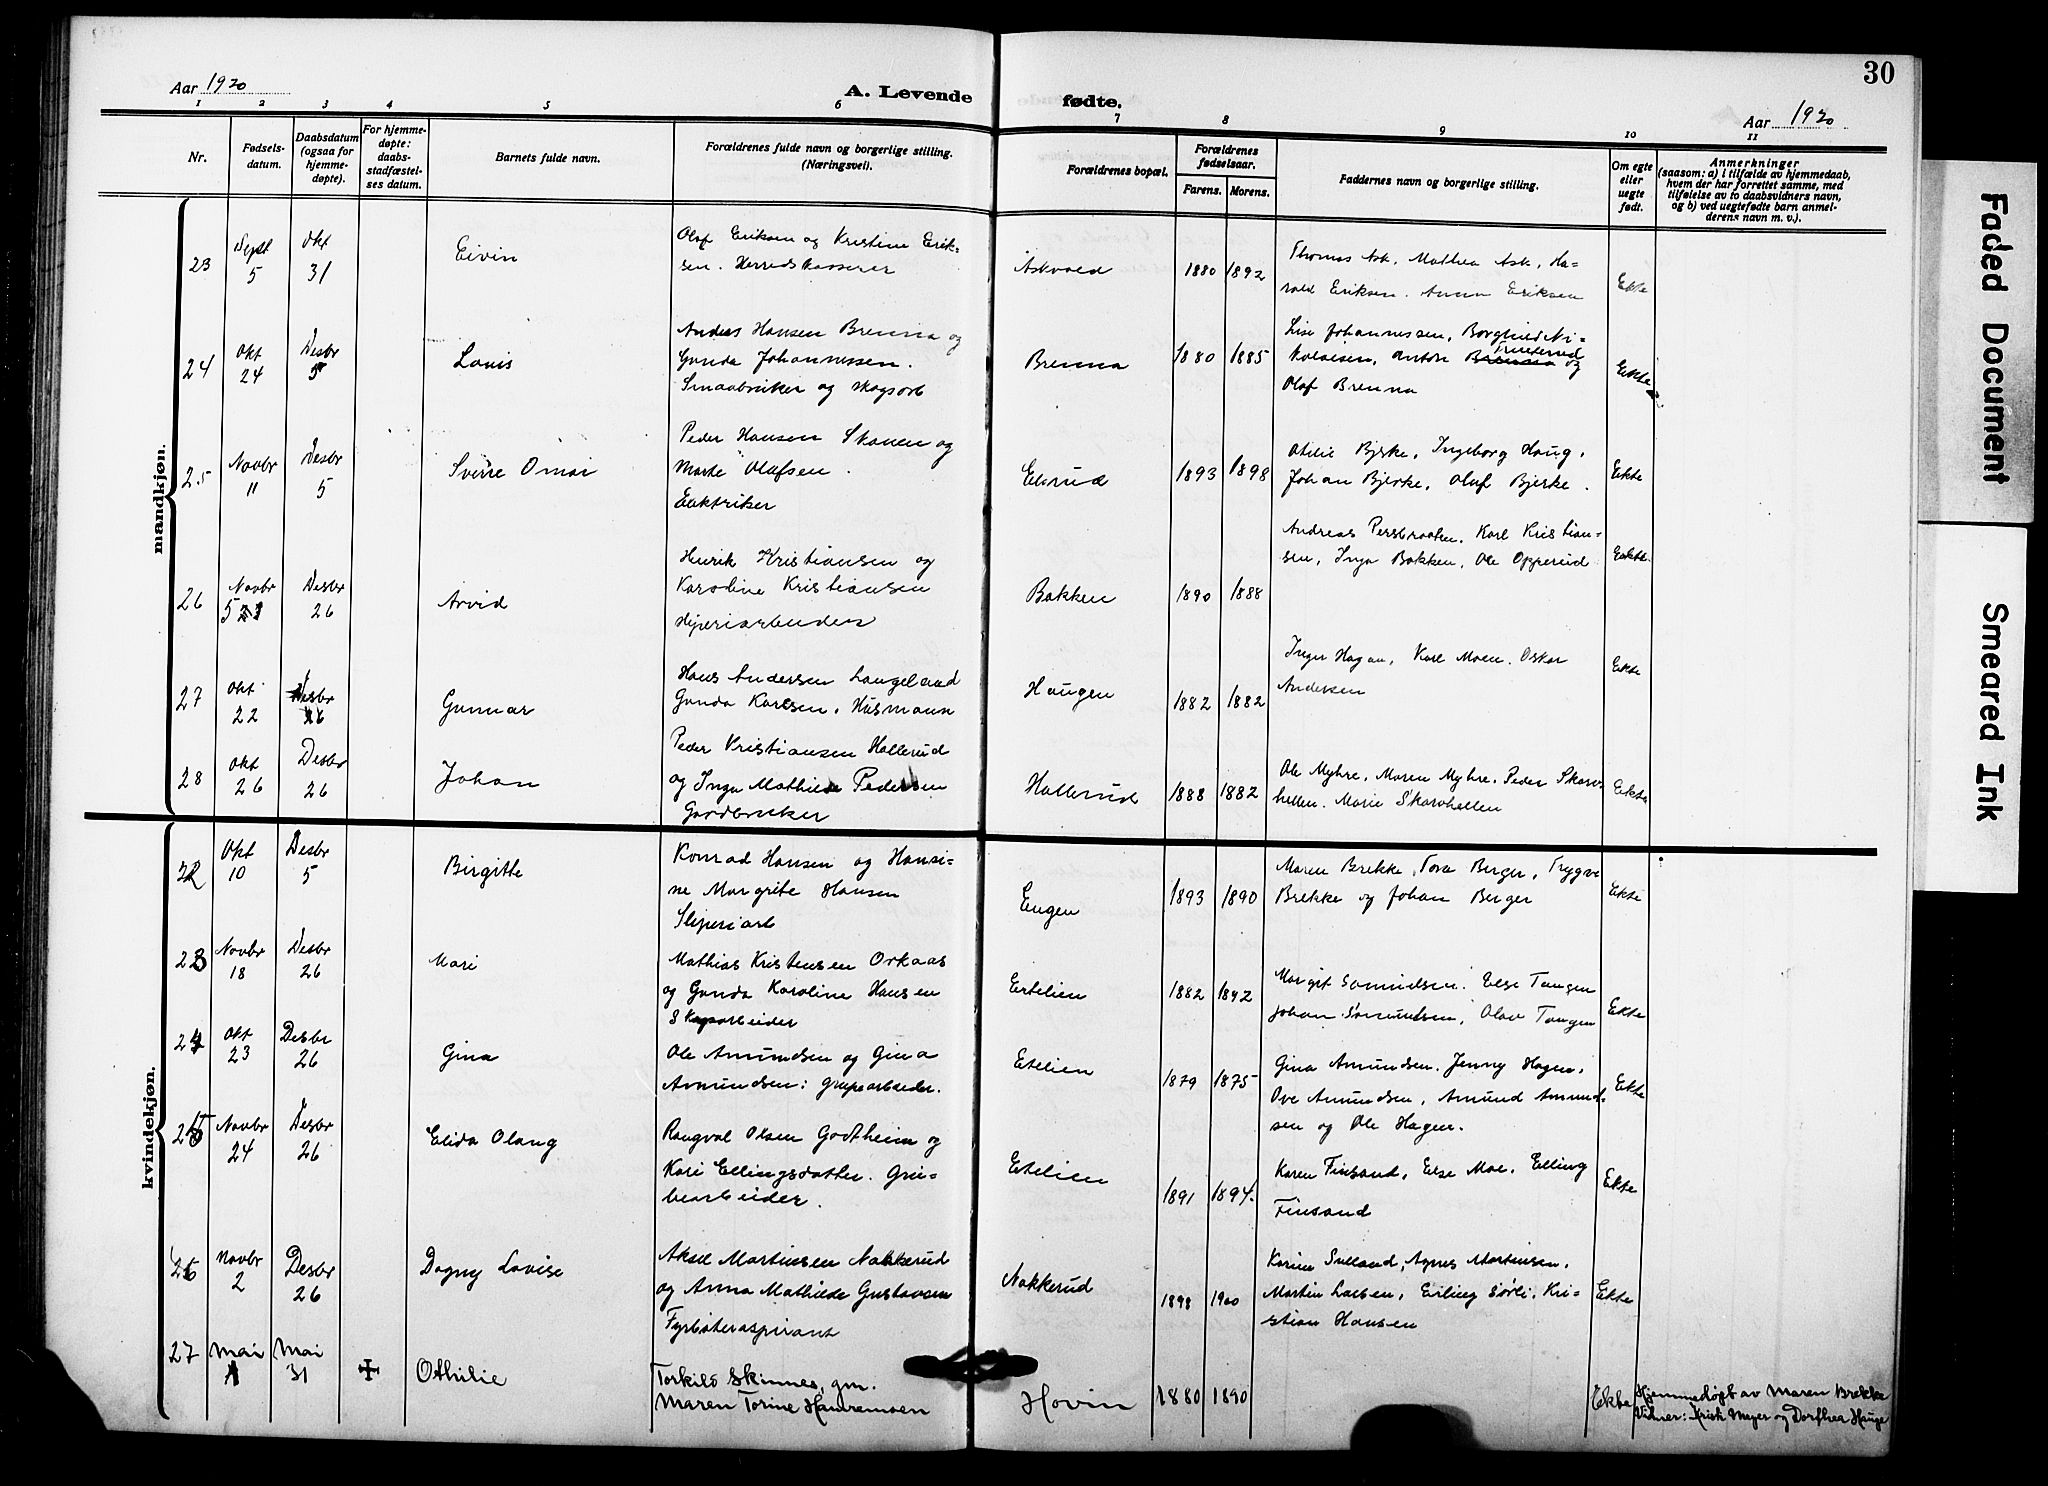 30
Aar 1920
A. Levende fødte.
Aar 1920
1 2 3 4 5 6 7 8 9 10 11
Nr.
Fødsels-
datum.
Daabsdatum
(ogsaa for
hjemme-
døpte).
For hjemme-
døpte:
daabs-
stadfæstel-
ses datum.
Barnets fulde navn.
Forældrenes fulde navn og borgerlige stilling.
(Næringsvei).
Forældrenes bopæl.
Forældrenes
fødselsaar.
Farens. Morens.
Faddernes navn og borgerlige stilling.
Om egte
eller
uegte
født.
Anmerkninger
(saasom: a) i tilfælde av hjemmedaab,
hvem der har forrettet samme, med
tilføielse av to daabsvidners navn,
og b) ved uegtefødte barn anmel-
derens navn m. v.).
mandkjøn.
23
Sept
5
Okt
31
Eivin
Olaf Eriksen og Kristine Erik-
sen. Herredskasserer
Askvold
1880 1892
Thomas Ask, Mathea Ask, Ha-
rald Eriksen. Anna Eriksen
Ekte
24
Okt
24
Desbr
5
Louis
Anders Hansen Brenna og
Gunda Johannessen.
Smaabruker og skogsarb
Brenna
1880 1885
Lise Johannessen, Borghild Ni-
kolaisen, Anton Brenna og
Olaf Brenna
Ekte
25
Novbr
11
Desbr
5
Sverre Omar
Peder Hansen Skauen og
Marte Olafsen.
Elektriker
Elsrud
1893 1898
Otilie Bjerke, Ingeborg Haug,
Johan Bjerke, Olaf Bjerke.
Ekte
26
Novbr
5
Desbr
26
Arvid
Henrik Kristiansen og
Karoline Kristiansen
Bakken
1890 1888
Andreas Persbraaten, Karl Kristian-
sen, Inga Bakken, Ole Opperud
Ekte
27
Okt
22
Desbr
26
Gunnar
Hans Andersen Langeland
Gunda Karlsen. Husmann
Haugen
1882 1882
Inger Hagan, Karl Moen. Oskar
Andersen
Ekte
28
Okt
26
Desbr
26
Johan
Peder Kristiansen Hallerud
og Inga Mathilde Pedersen
Gardbruker
Hallerud
1888 1882
Ole Myhre, Maren Myhre, Peder Skarv-
hellen. Marie Skarvhellen
Ekte
kvindekjøn.
22
Okt
10
Desbr
5
Birgitte
Konrad Hansen og Hansi-
ne Margrite Hansen
Sliperiarb
Engen
1893 1890
Maren Brekke, Tora Berger, Trygve
Brekke og Johan Berger
Ekte
23
Novbr
18
Desbr
26
Mari
Mathias Kristensen Orkaas
og Gunda Karoline Hansen
Skogsarbeider
Ertelien
1882 1892
Margit Samuelsen. Else Tangen
Johan Samuelsen, Olav Tangen
Ekte
24
Okt
23
Desbr
26
Gina
Ole Amundsen og Gina
Amundsen: grubearbeider.
Ertelien
1879 1875
Gina Amundsen, Jenny Hagen,
Ove Amundsen, Amund Amund-
sen og Ole Hagen.
Ekte
25
Novbr
24
Desbr
26
Elida Olaug
Rangval Olsen Godtheim og
Kari Ellingsdatter. Gru-
bearbeider.
Ertelien
1891 1894.
Karen Finsand, Else Moe, Elling
Finsand
Ekte
26
Novbr
2
Desbr
26
Dagny Lovise
Aksel Martinsen Nakkerud
og Anna Mathilde Gustavsen
Fyrbøteraspirant
Nakkerud
1898 1900
Karen Solland, Agnes Martinsen,
Martin Larsen, Elling Sørli, Kri-
stian Hansen
Ekte
27
Mai
1
Mai
31
Othilie
Torkild Skinnes, gm.
Maren Torine Hauremoen
Hovin
1880 1890
Ekte
Hjemmedøpt av Maren Brekke
Vidner: Krist Meyer og Dorthea Hauge
Faded Document
Smeared Ink